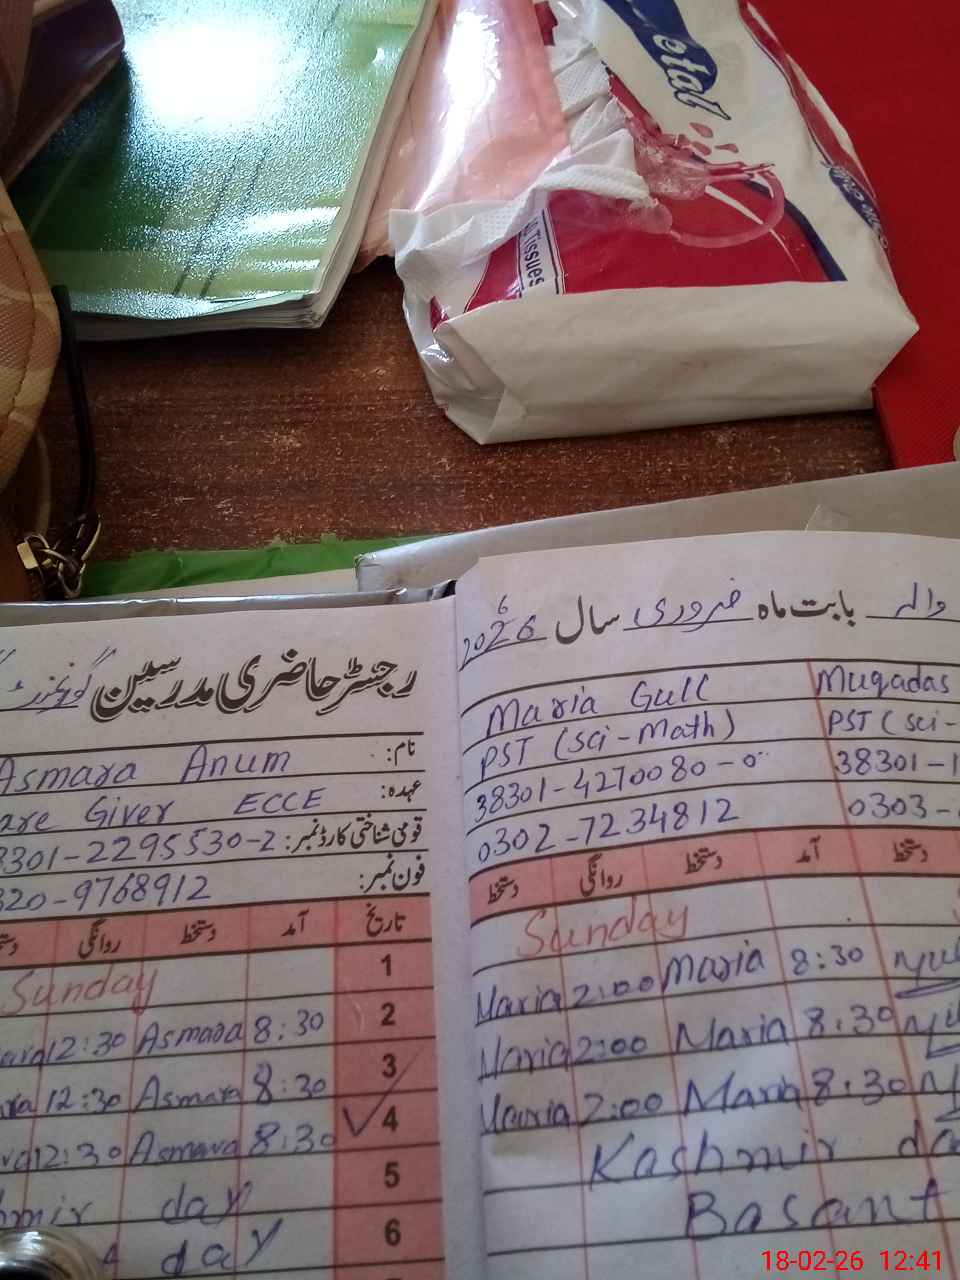 otal
Tissues
والہ بابت ماہ فروری سال 2026
رجسٹر حاضری مدرسین
Maria Gull Muqadas
PST (sci-Math) PST (sci-
38301-4270080-0 38301-1
0302-7234812 0303-
دستخط آمد دستخط روانگی دستخط
Sunday
Maria 2:00 Maria 8:30
Maria 2:00 Maria 8:30
Maria 2:00 Maria 8:30
Kashmir da
Basant
نام: Asmara Anum
عہدہ: are Giver ECCE
قومی شناختی کارڈ نمبر: 3301-2295530-2
فون نمبر: 320-9768912
تاریخ آمد دستخط روانگی
1 Sunday
2 8:30 Asmara 12:30
3 8:30 Asmara 12:30
4 8:30 Asmara 12:30
5 mir day
6 day
18-02-26 12:41